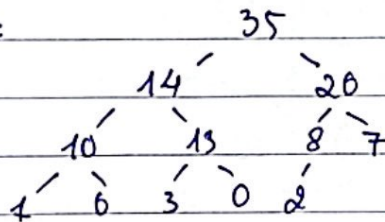 :
35
14 20
10 13 8 7
1 6 3 0 2